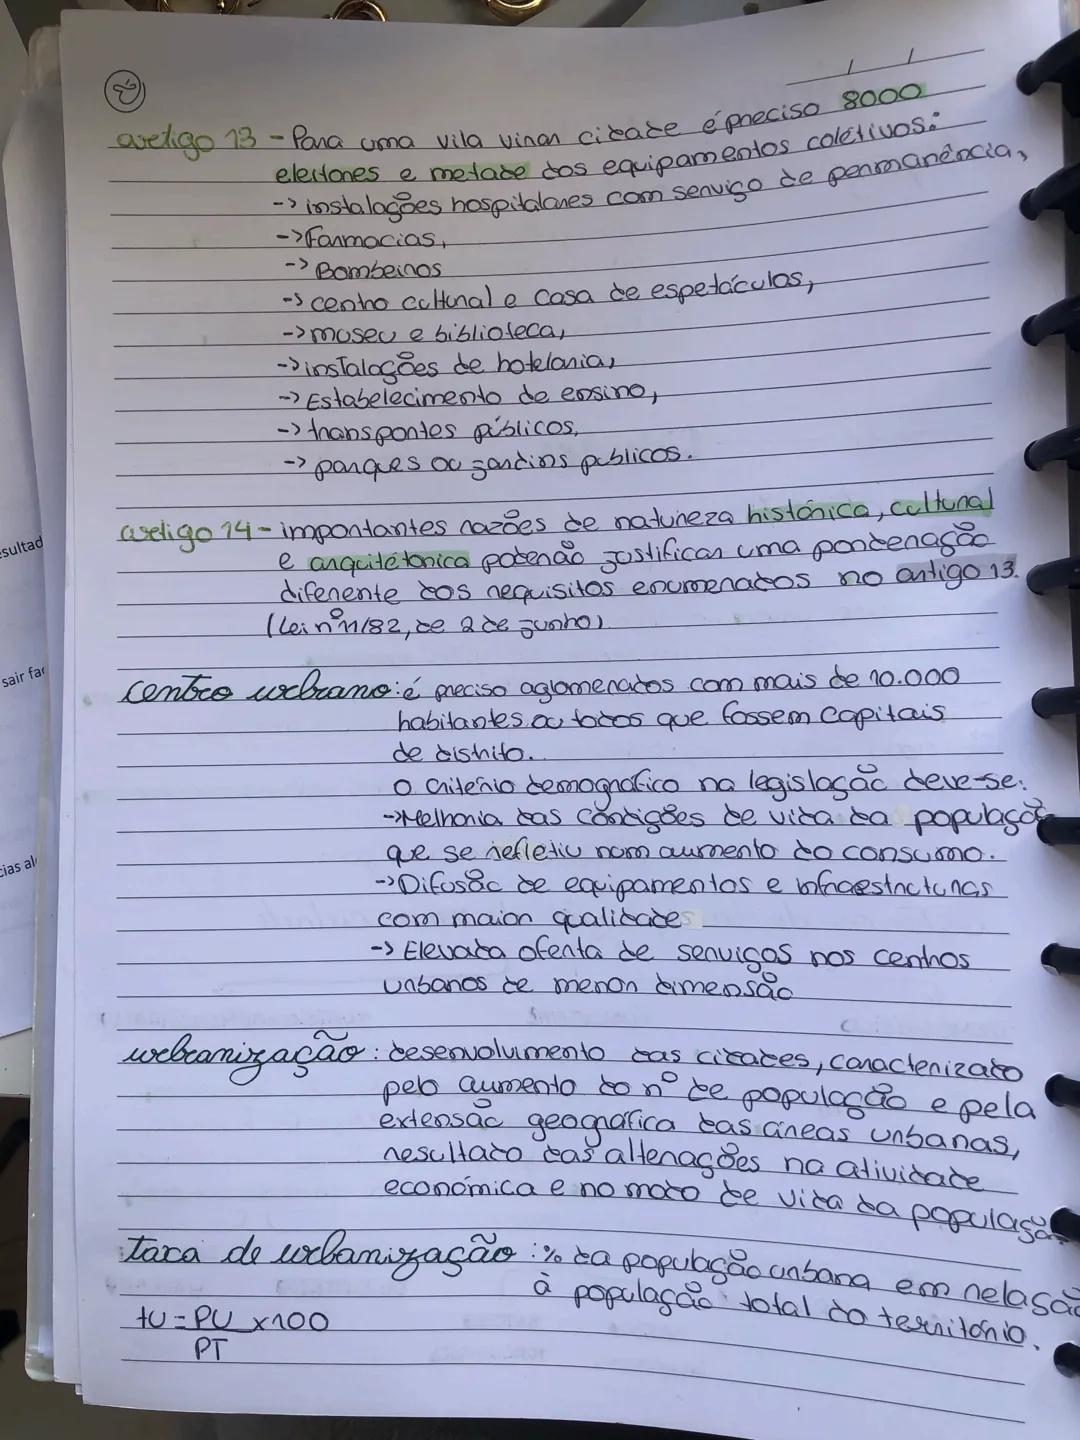 artigo 13 - Para uma vila virar cidade é preciso 8000
eleitores e metade dos equipamentos coletivos:
-> instalações hospitalares com serviço de permanência,
-> Farmacias,
-> Bombeiros
-> centro cultural e casa de espetáculos,
-> museu e biblioteca,
-> instalações de hotelaria,
-> Estabelecimento de ensino,
-> transportes públicos,
-> parques ou jardins publicos.
artigo 14 - importantes razões de natureza histórica, cultural
e arquitetonica poderão justificar uma ponderação
diferente dos requisitos enumerados no artigo 13.
(Lei nº 11/82, de 2 de junho)
centro urbano: é preciso aglomerados com mais de 10.000
habitantes ou todos que fossem capitais
de distrito.
O critério demografico na legislação deve-se:
-> Melhoria das condições de vida da população
que se refletiu num aumento do consumo.
-> Difusão de equipamentos e infraestruturas
com maior qualidades
-> Elevada oferta de serviços nos centros
urbanos de menor dimensão
urbanização: desenvolvimento das cidades, caracterizado
pelo aumento do nº de população e pela
extensão geografica das áreas urbanas,
resultado das alterações na atividade
económica e no modo de vida da população
taxa de urbanização: % da população urbana em relação
à população total do território.
tU = PU x100
PT
sair